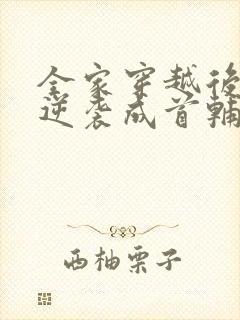 全家穿越後
逆袭成首輔
西柚栗子